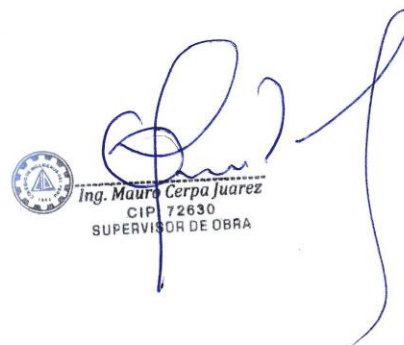 Ing. Mauro Cerpa Juarez
CIP. 72630
SUPERVISOR DE OBRA